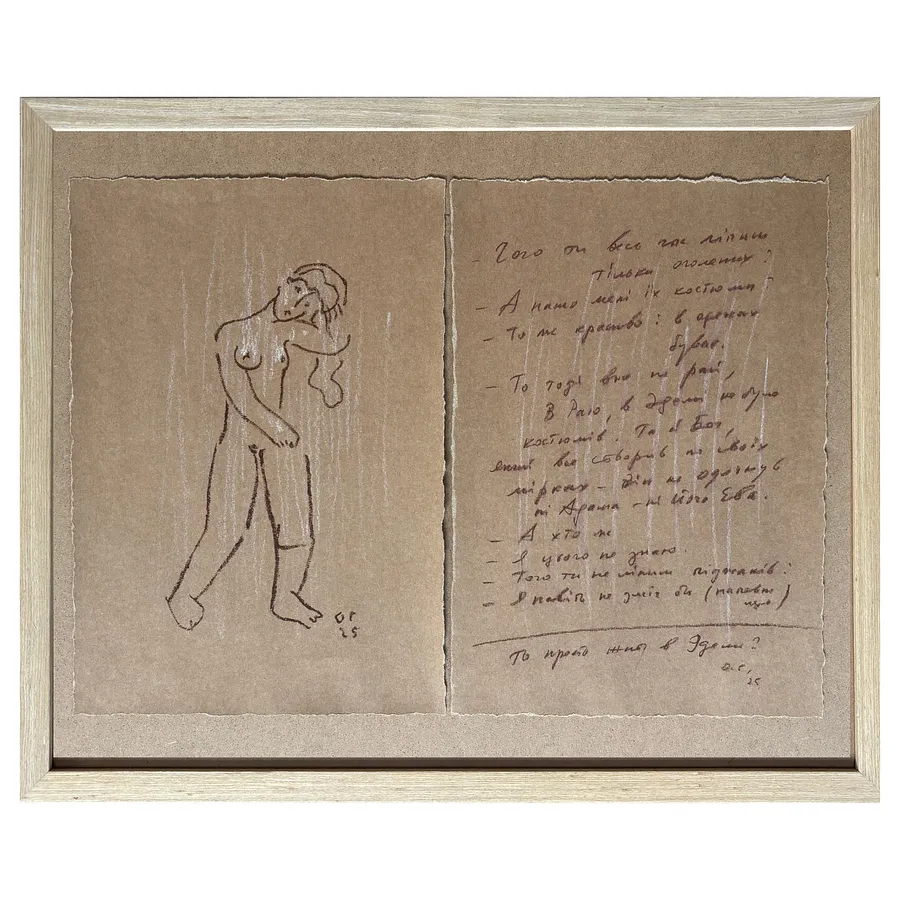 ОГ
25
- Чого ти весь час ліпиш
тільки оголених?
- А нащо мені їх костюми?
- То ж красиво: в одежах
буває.
- То тоді вже не рай,
В Раю, в Эдемі не було
костюмів. Та й Бог,
який все створив по своїх
мірках - Він не одягнув
ні Адама - ні його Ева.
- А хто ж
- Я цього не знаю.
- Того ти не ліпиш піджаків?
- Я навіть не зміг би (напевно
що)
Ти просто живеш в Эдемі?
О.Г,
25